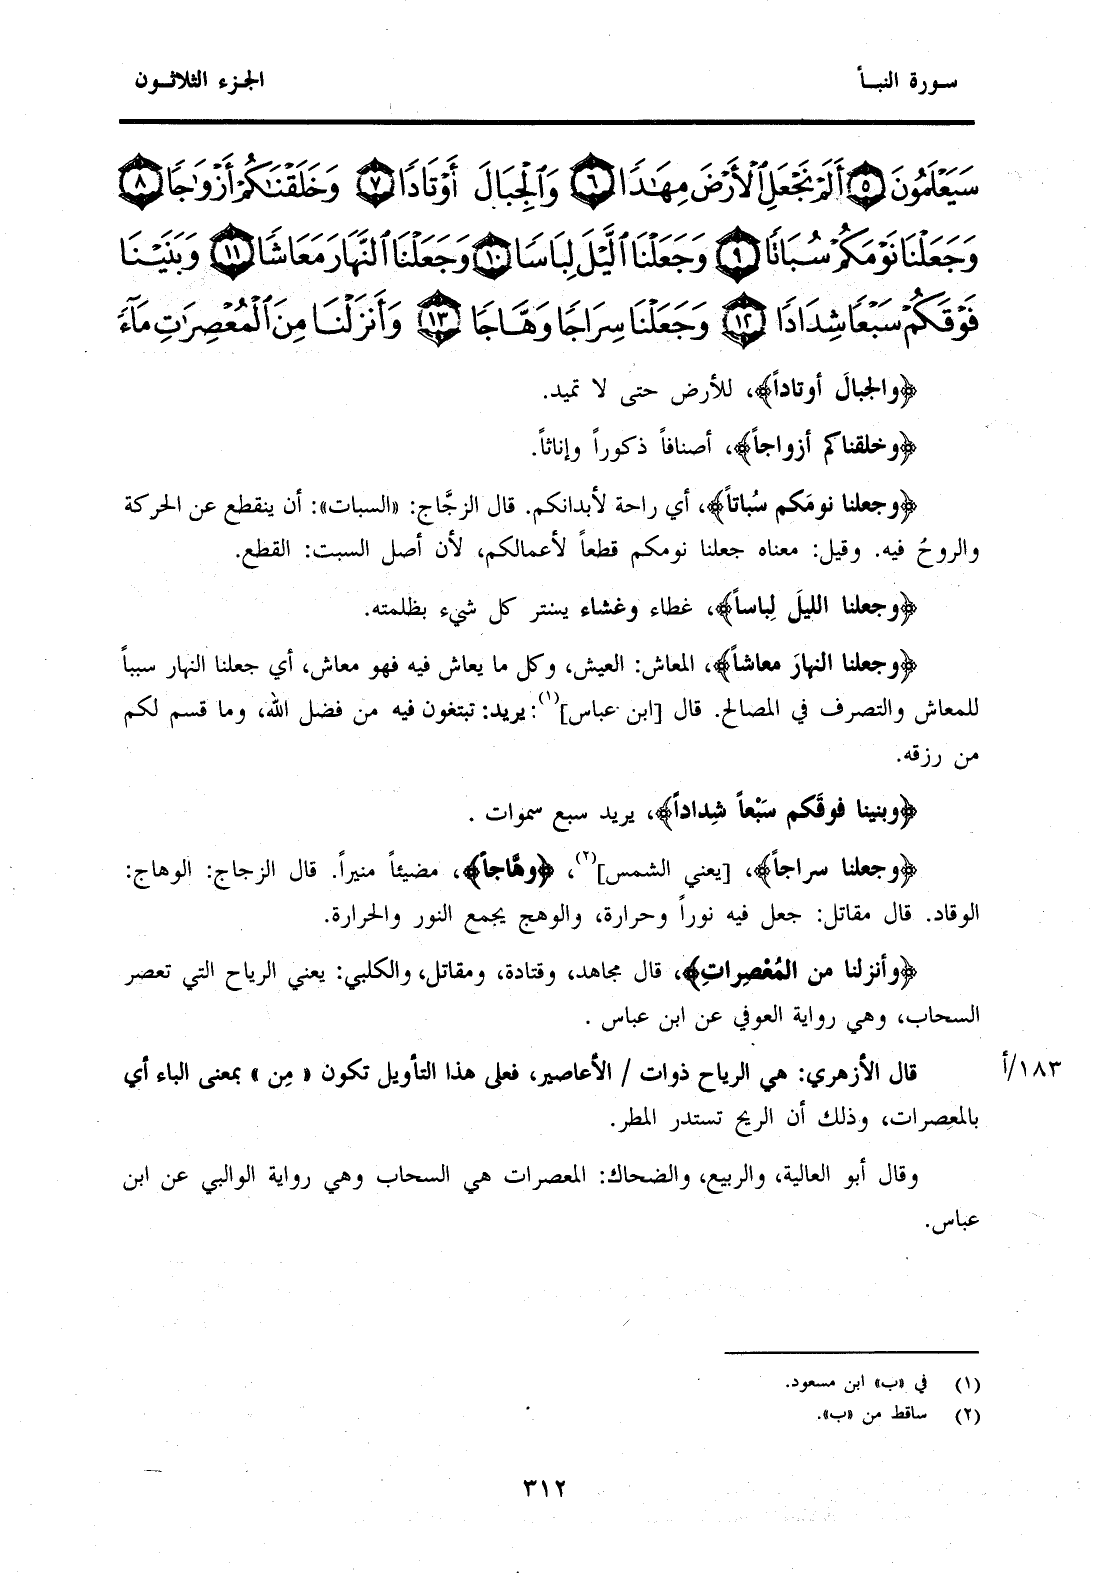 سورة النبأ
الجزء الثلاثون
سَيَعْلَمُونَ ٥ أَلَمْ نَجْعَلِ ٱلْأَرْضَ مِهَٰدًا ٦ وَٱلْجِبَالَ أَوْتَادًا ٧ وَخَلَقْنَٰكُمْ أَزْوَٰجًا ٨
وَجَعَلْنَا نَوْمَكُمْ سُبَاتًا ٩ وَجَعَلْنَا ٱلَّيْلَ لِبَاسًا ١٠ وَجَعَلْنَا ٱلنَّهَارَ مَعَاشًا ١١ وَبَنَيْنَا
فَوْقَكُمْ سَبْعًا شِدَادًا ١٢ وَجَعَلْنَا سِرَاجًا وَهَّاجًا ١٣ وَأَنزَلْنَا مِنَ ٱلْمُعْصِرَٰتِ مَآءً
﴿والجبالَ أوتاداً﴾، للأرض حتى لا تميد.
﴿وخلقناكم أزواجاً﴾، أصنافاً ذكوراً وإناثاً.
﴿وجعلنا نومَكم سُباتاً﴾، أي راحة لأبدانكم. قال الزجَّاج: «السبات»: أن ينقطع عن الحركة
والروحُ فيه. وقيل: معناه جعلنا نومكم قطعاً لأعمالكم، لأن أصل السبت: القطع.
﴿وجعلنا الليلَ لِباساً﴾، غطاء وغشاء يستر كل شيء بظلمته.
﴿وجعلنا النهارَ معاشاً﴾، المعاش: العيش، وكل ما يعاش فيه فهو معاش، أي جعلنا النهار سبباً
للمعاش والتصرف في المصالح. قال [ابن عباس]⁽١⁾: يريد: تبتغون فيه من فضل الله، وما قسم لكم
من رزقه.
﴿وبنينا فوقَكم سَبْعاً شِداداً﴾، يريد سبع سموات .
﴿وجعلنا سراجاً﴾، [يعني الشمس]⁽٢⁾، ﴿وهَّاجاً﴾، مضيئاً منيراً. قال الزجاج: الوهاج:
الوقاد. قال مقاتل: جعل فيه نوراً وحرارة، والوهج يجمع النور والحرارة.
﴿وأنزلنا من المُعْصِراتِ﴾، قال مجاهد، وقتادة، ومقاتل، والكلبي: يعني الرياح التي تعصر
السحاب، وهي رواية العوفي عن ابن عباس .
قال الأزهري: هي الرياح ذوات / الأعاصير، فعلى هذا التأويل تكون « مِن » بمعنى الباء أي
١٨٣/أ
بالمعصرات، وذلك أن الريح تستدر المطر.
وقال أبو العالية، والربيع، والضحاك: المعصرات هي السحاب وهي رواية الوالبي عن ابن
عباس.
(١) في «ب» ابن مسعود.
(٢) ساقط من «ب».
٣١٢